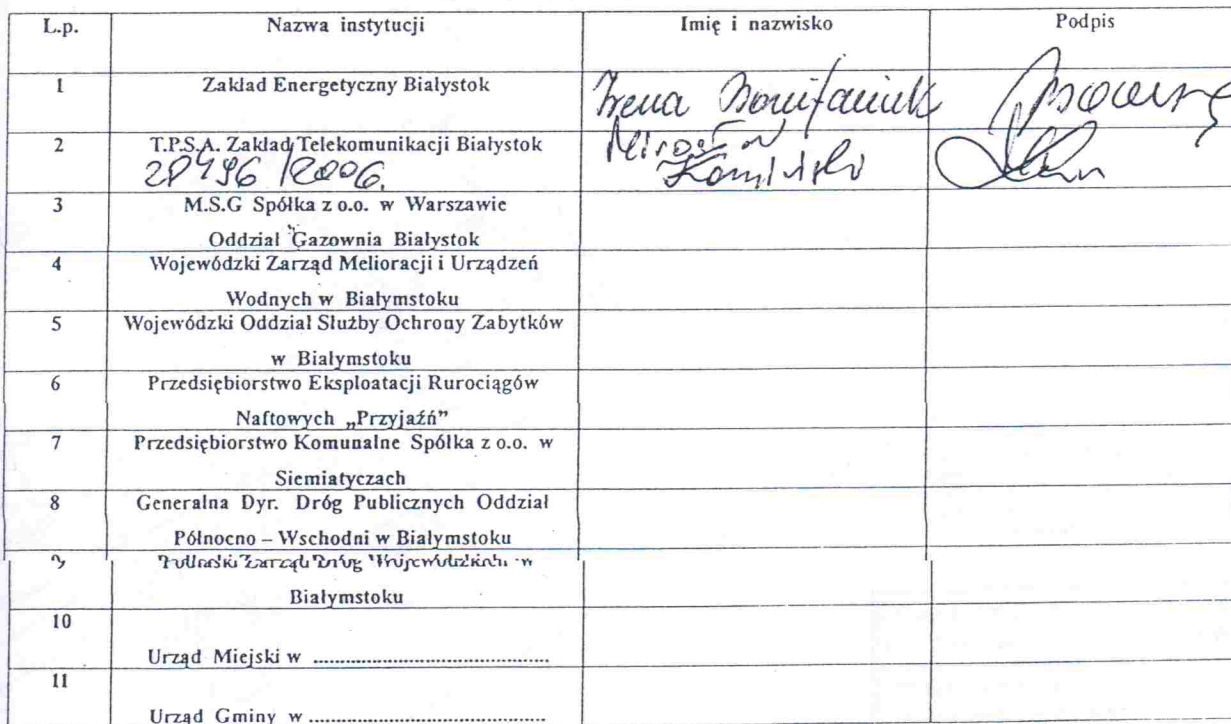 L.p. Nazwa instytucji Imię i nazwisko Podpis
1 Zakład Energetyczny Białystok Irena Bonifaciuk
2 T.P.S.A. Zakład Telekomunikacji Białystok Mirosław
/2006. Kamiński
3 M.S.G Spółka z o.o. w Warszawie
Oddział Gazownia Białystok
4 Wojewódzki Zarząd Melioracji i Urządzeń
Wodnych w Białymstoku
5 Wojewódzki Oddział Służby Ochrony Zabytków
w Białymstoku
6 Przedsiębiorstwo Eksploatacji Rurociągów
Naftowych „Przyjaźń”
7 Przedsiębiorstwo Komunalne Spółka z o.o. w
Siemiatyczach
8 Generalna Dyr. Dróg Publicznych Oddział
Północno – Wschodni w Białymstoku
9 Podlaski Zarząd Dróg Wojewódzkich w
Białymstoku
10
Urząd Miejski w ..........................................
11
Urząd Gminy w ..........................................